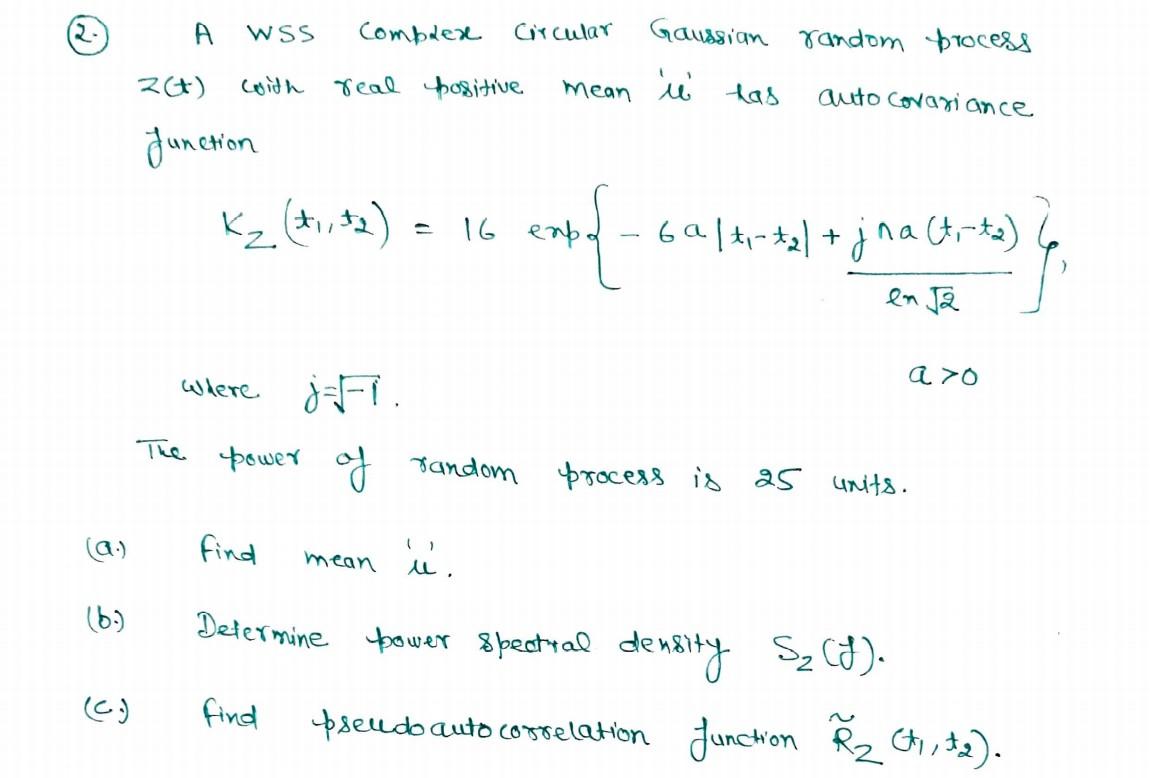 2. A WSS Complex Circular Gaussian random process
Z(t) with real positive mean 'μ' has autocovariance
function
K_Z (t₁, t₂) = 16 exp{ - 6a|t₁-t₂| + jπa(t₁-t₂) / ln √2 },
a > 0
where j=√-1.
The power of random process is 25 units.
(a.) find mean 'μ'.
(b.) Determine power spectral density S_Z(f).
(c.) find pseudoautocorrelation function R̃_Z (t₁, t₂).